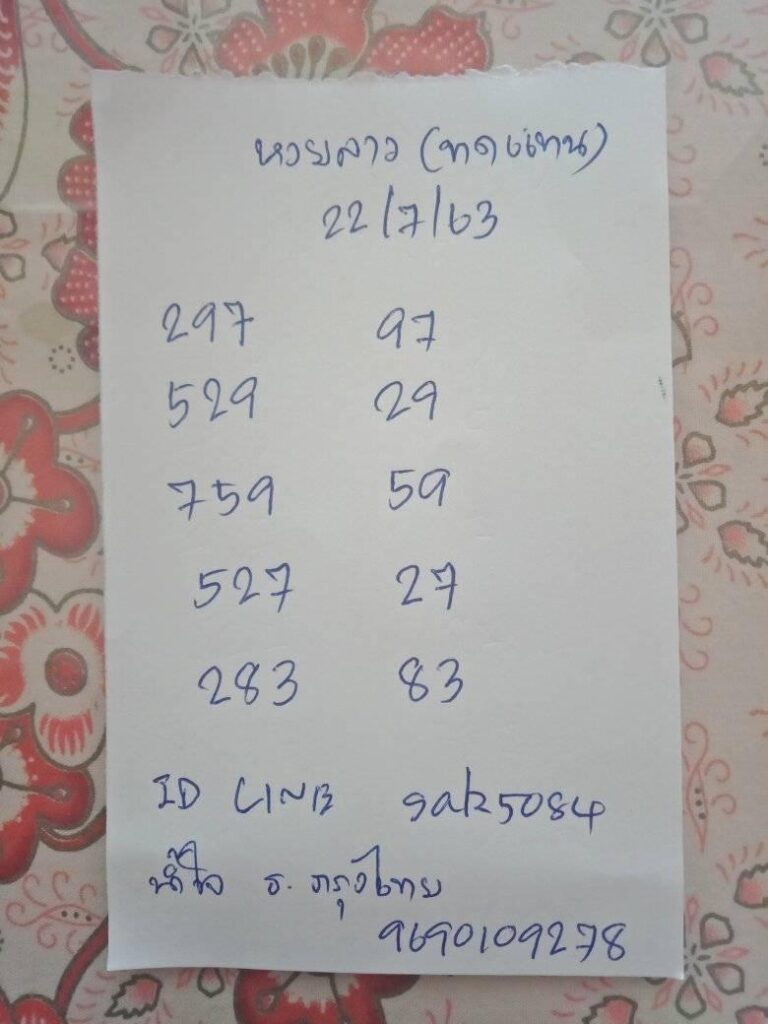 หวยลาว (ทดแทน)
22/7/63
297 97
529 29
759 59
527 27
283 83
ID LINE sak5084
น้ำใจ ธ. กรุงไทย
9690109278